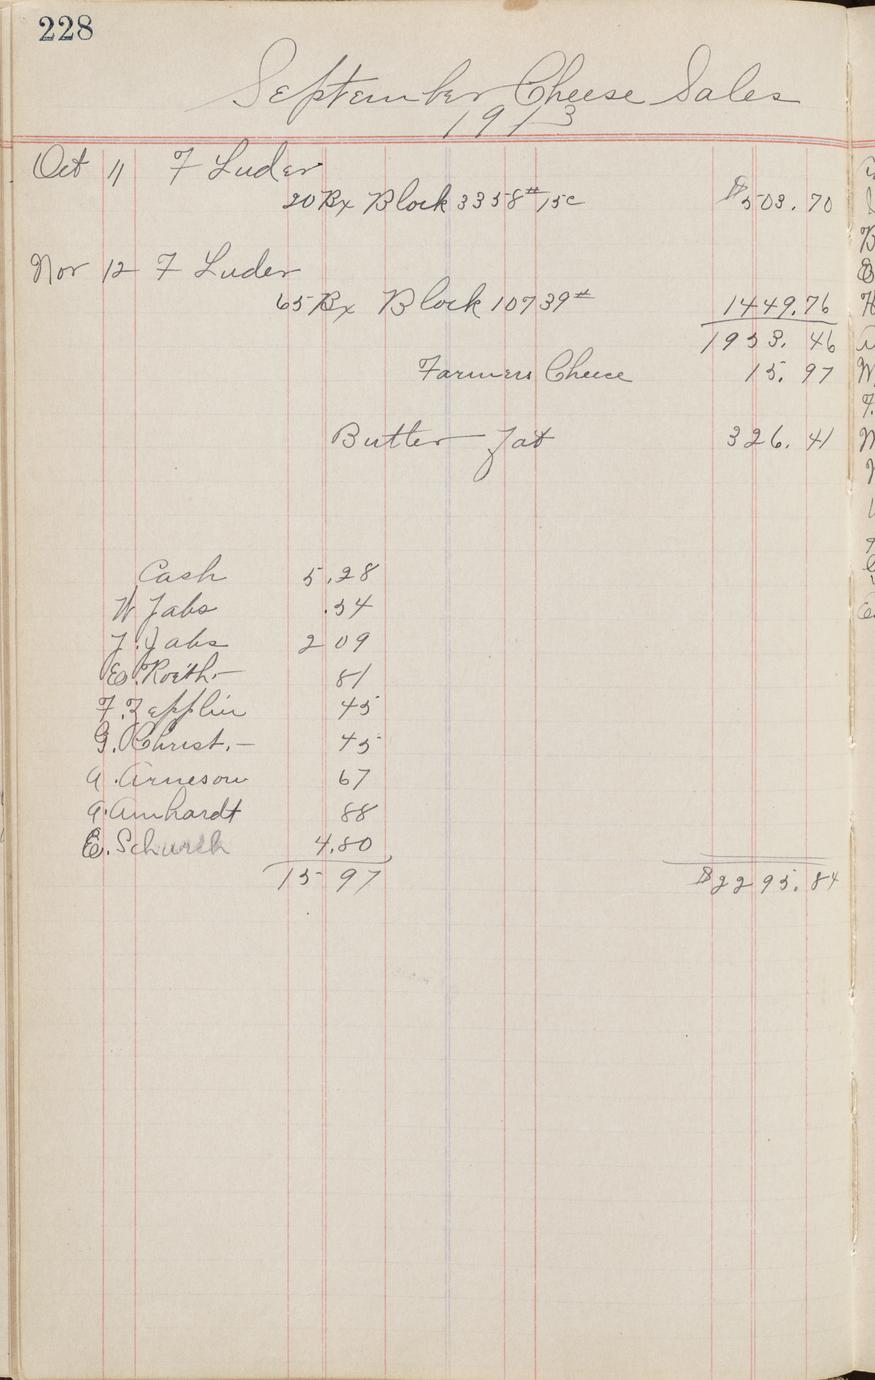 228
September Cheese Sales
1913
Oct 11 F Luder
20 Bx Block 3358# 15c $503.70
Nov 12 F Luder
65 Bx Block 10739# 1449.76
1953.46
Farmers Cheese 15.97
Butter Fat 326.41
Cash 5.28
W Jabs .54
J. Jabs 2 09
E. Roeth 81
F. Zepplin 45
G. Christ. — 45
A. Arneson 67
A. Amhardt 88
E. Schurch 4.80
15 97 $2295.84